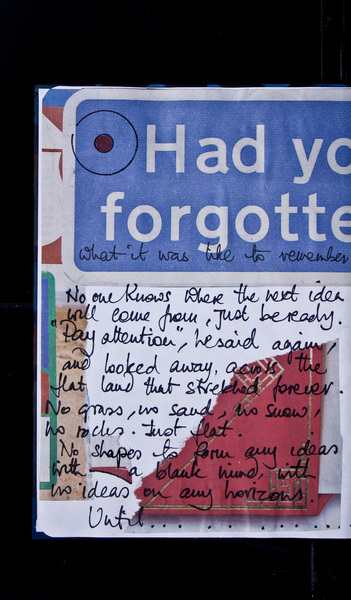 Had yo
forgotte
what it was like to remember
No one knows where the next idea
will come from, just be ready.
"Pay attention", he said again,
and looked away, across the
flat land that stretched forever.
No grass, no sand, no snow,
no rocks. Just flat.
No shapes to form any ideas
with a blank mind, with
no ideas on any horizons.
Until